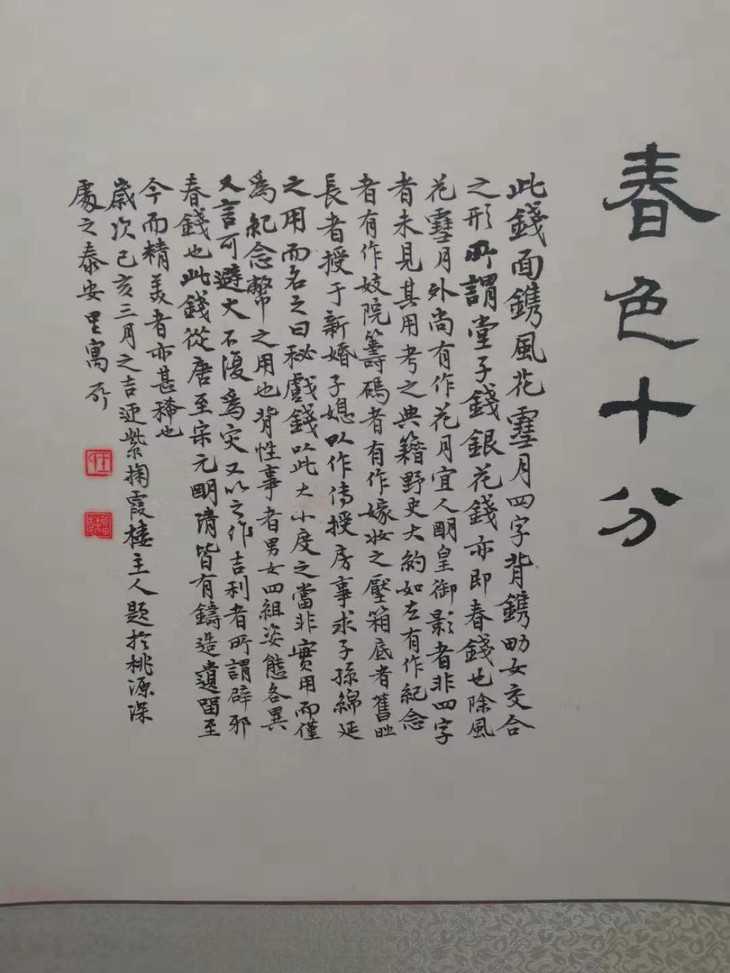 春色十分
此錢面鐫風花雪月四字背鐫男女交合
之形所謂堂子錢銀花錢亦即春錢也除風
花雪月外尚有作花月宜人明皇御影者非四字
者未見其用考之典籍野史大約如左有作紀念
者有作妓院籌碼者有作嫁妝之壓箱底者舊時
長者授于新婚子媳以作傳授房事求子孫綿延
之用而名之曰秘戲錢以此大小度之當非實用而僅
為紀念幣之用也背性事者男女四組姿態各異
又言可避火不復為灾又以之作吉利者所謂辟邪
春錢也此錢從唐至宋元明清皆有鑄造遺留至
今而精美者亦甚稀也
歲次己亥三月之吉迎紫掬霞樓主人題於桃源深
處之泰安里寓所